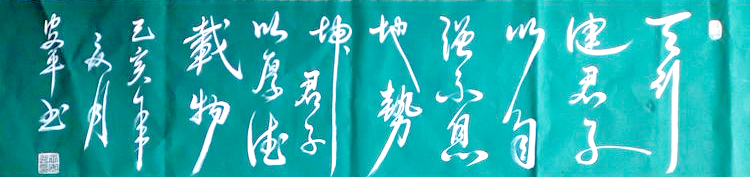 天行
健君子
以自
强不息
地势
坤君子
以厚德
載物
己亥年
夏月
安平书